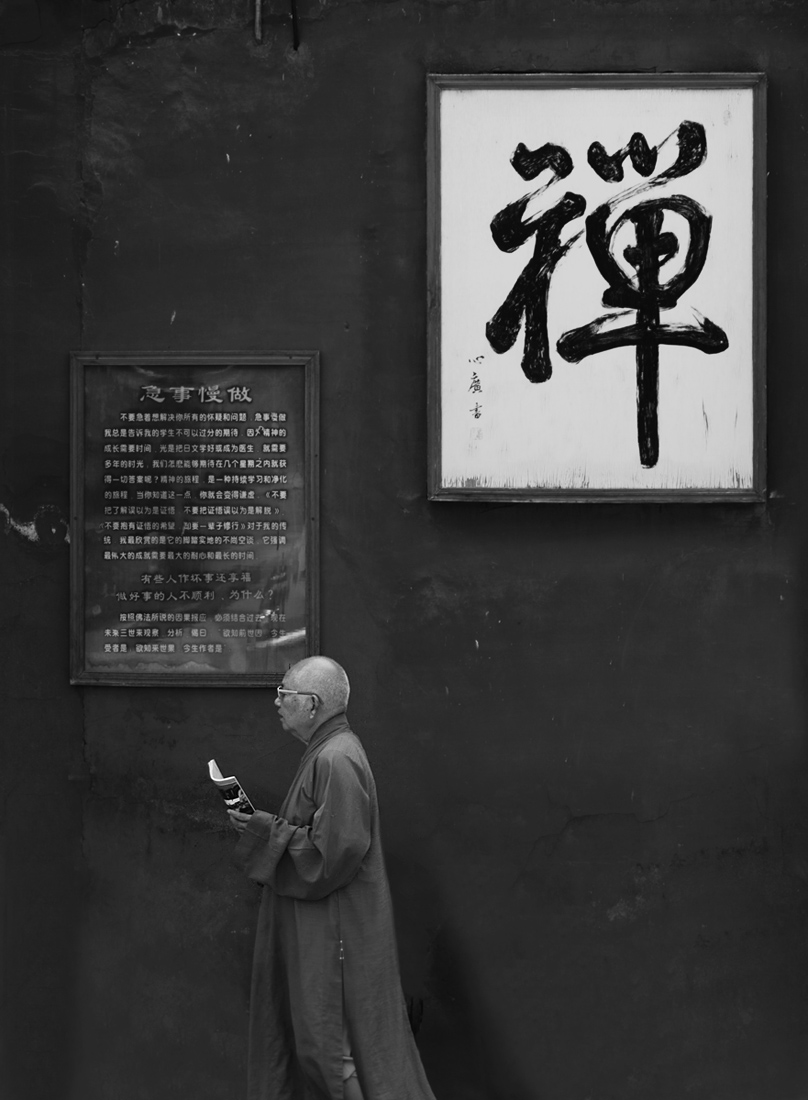 急事慢做
不要急着想解决你所有的怀疑和问题 急事慢做
我总是告诉我的学生不可以过分的期待 因为精神的
成长需要时间 光是把日文学好或成为医生 就需要
多年的时光 我们怎麽能够期待在几个星期之内就获
得一切答案呢？精神的旅程 是一种持续学习和净化
的旅程 当你知道这一点 你就会变得谦虚 《不要
把了解误以为是证悟 不要把证悟误以为是解脱》
《不要抱有证悟的希望 却要一辈子修行》对于我的传
统 我最欣赏的是它的脚踏实地的不尚空谈 它强调
最伟大的成就需要最大的耐心和最长的时间
有些人作坏事还享福
做好事的人不顺利 为什么？
按照佛法所说的因果报应 必须结合过去 现在
未来三世来观察 分析 偈曰 欲知前世因 今生
受者是 欲知来世果 今生作者是
禪
心廣書